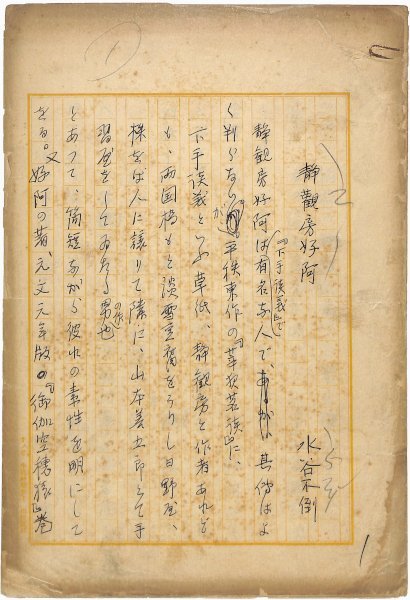 靜觀房好阿
水谷不倒
靜観房好阿は『下手談義』で有名な人であるが其傳はよ
く判らないが平秩東作の『莘野茗談』に、
下手談義といふ草紙、靜観房と作者あれど
も、両国橋もと淡雪豆腐をうりし日野屋、
株をば人に譲りて隣に、山本善五郎とて手
習屋をしてゐたる男の作也
とあつて、簡短ながら彼れの素性を明にして
をる。又好阿の著、元文元年版の『御伽空穂猿』巻
1